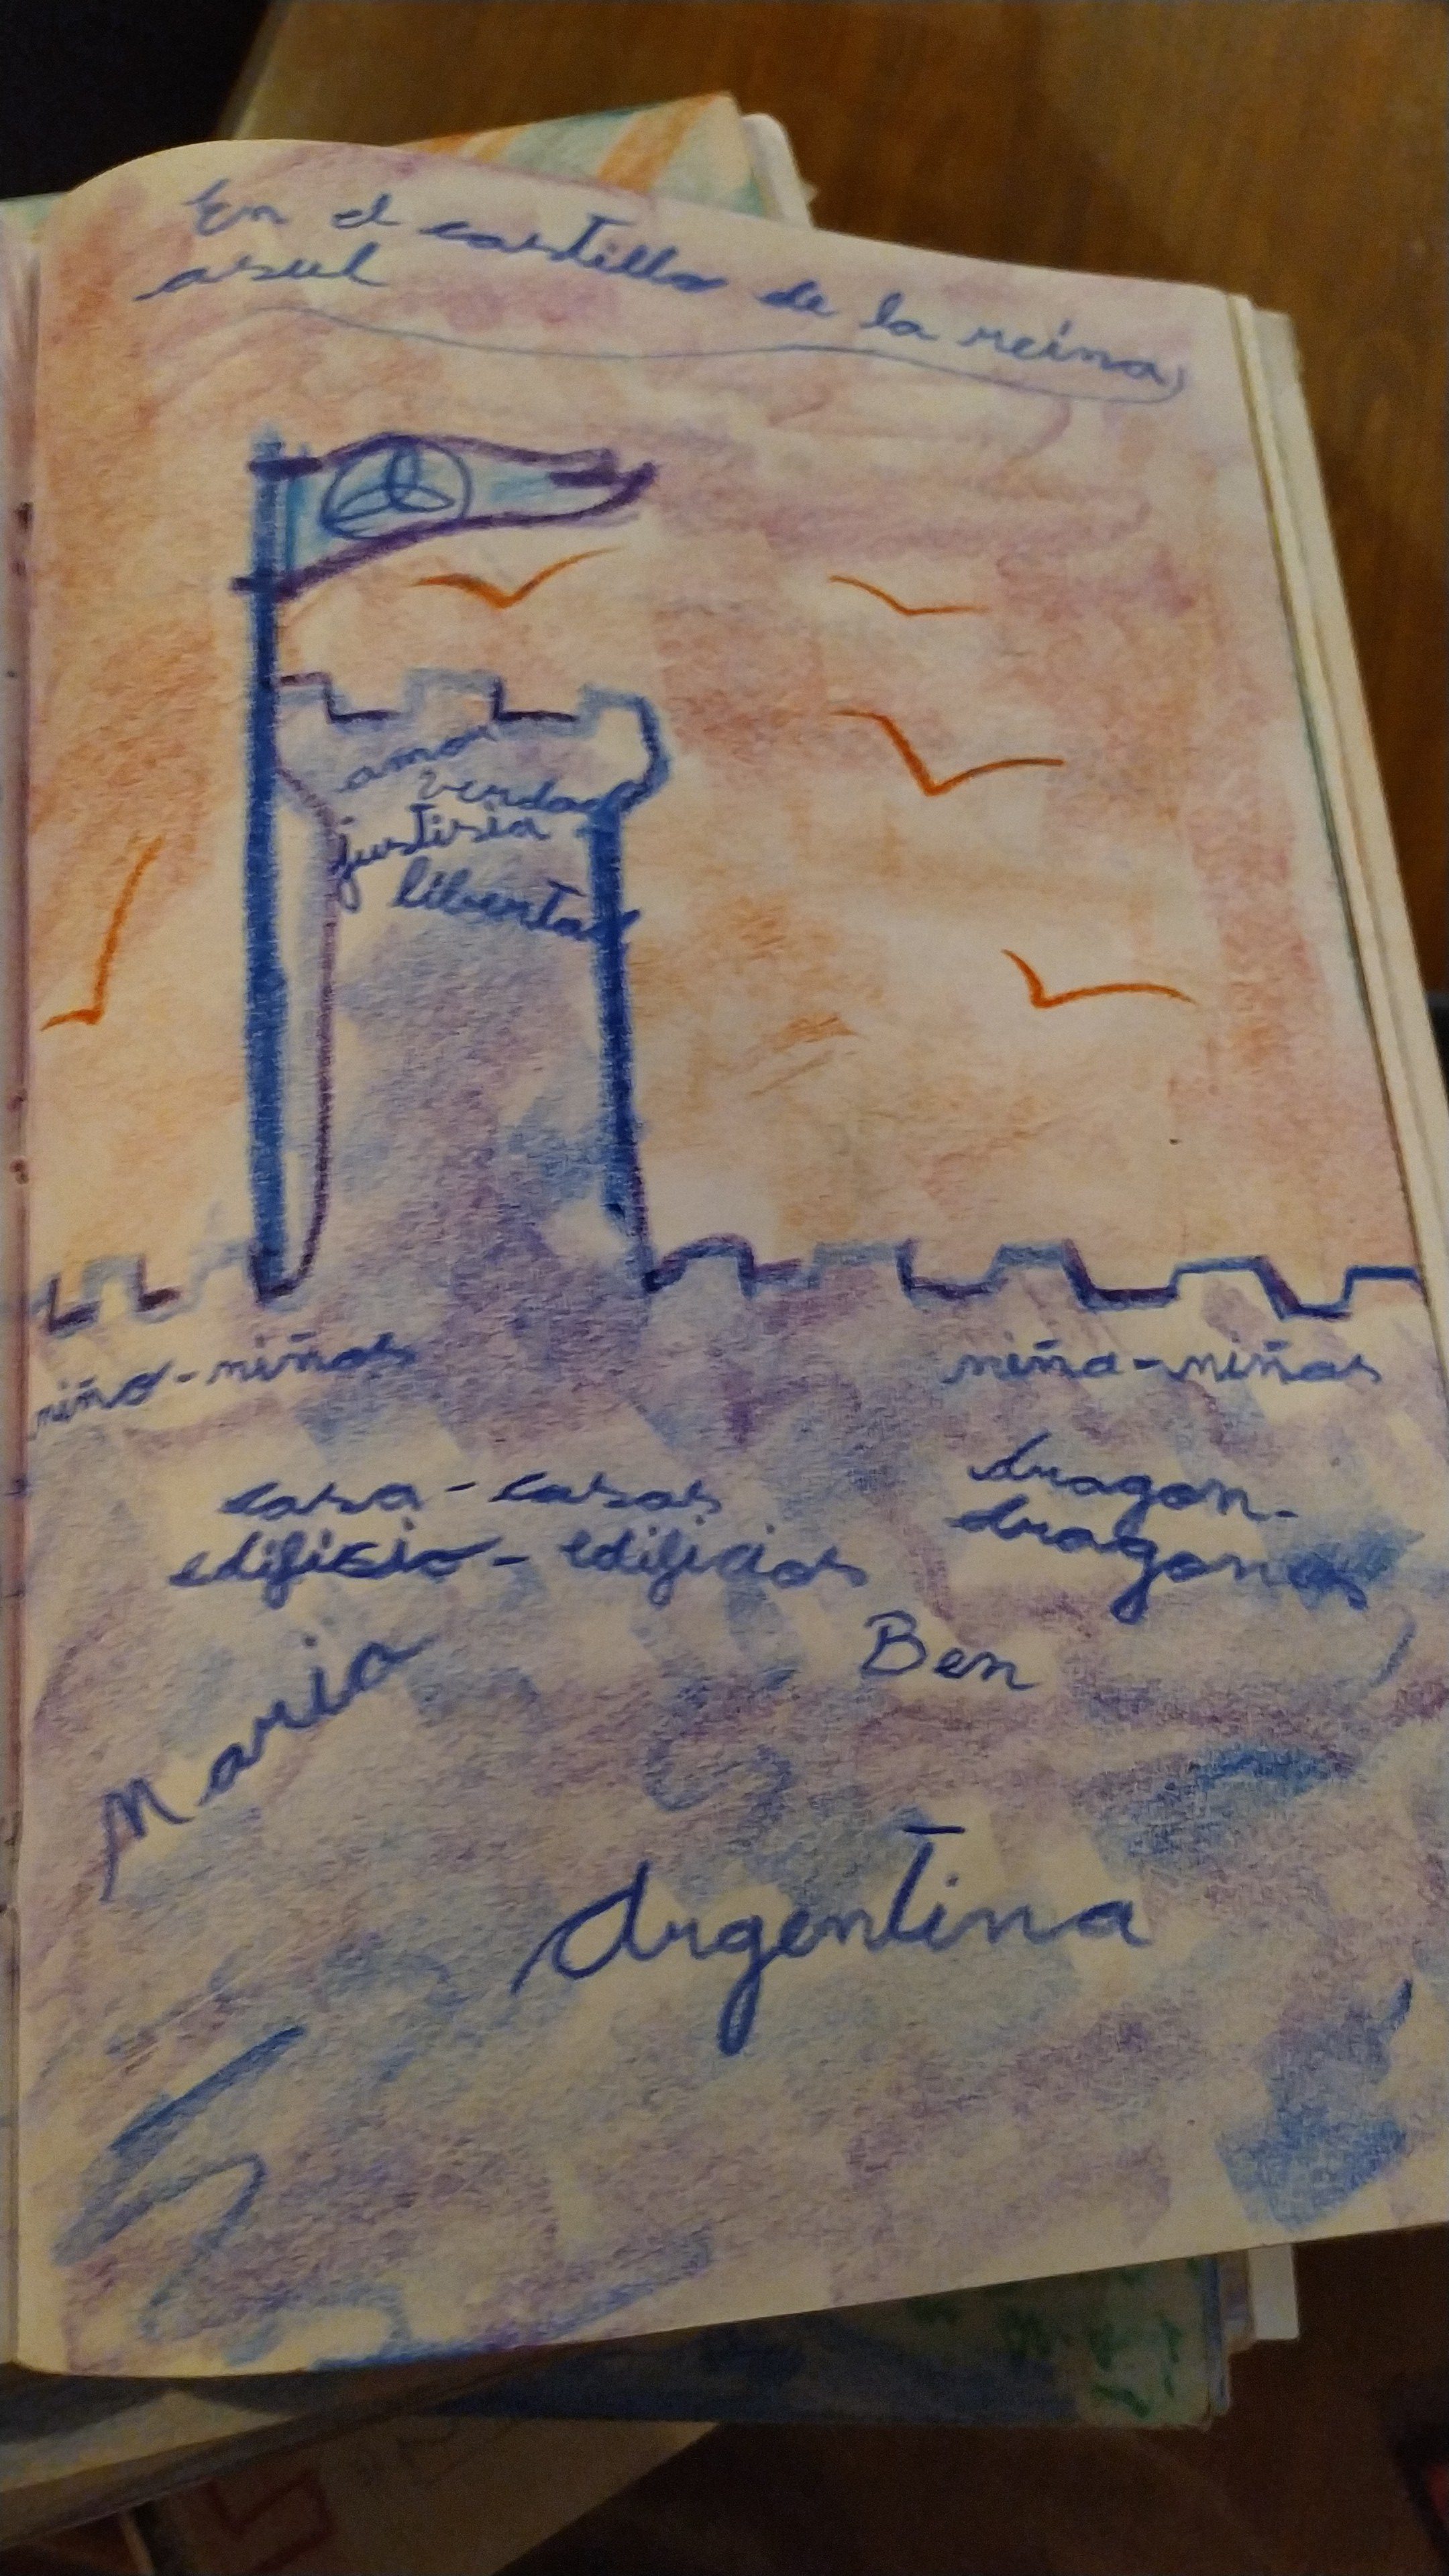 En el castillo de la reina
asul
amor
verdad
justisia
libertad
niño-niños
niña-niñas
casa-casas
dragon-
dragones
edifisio-edificios
Ben
Maria
Argentina